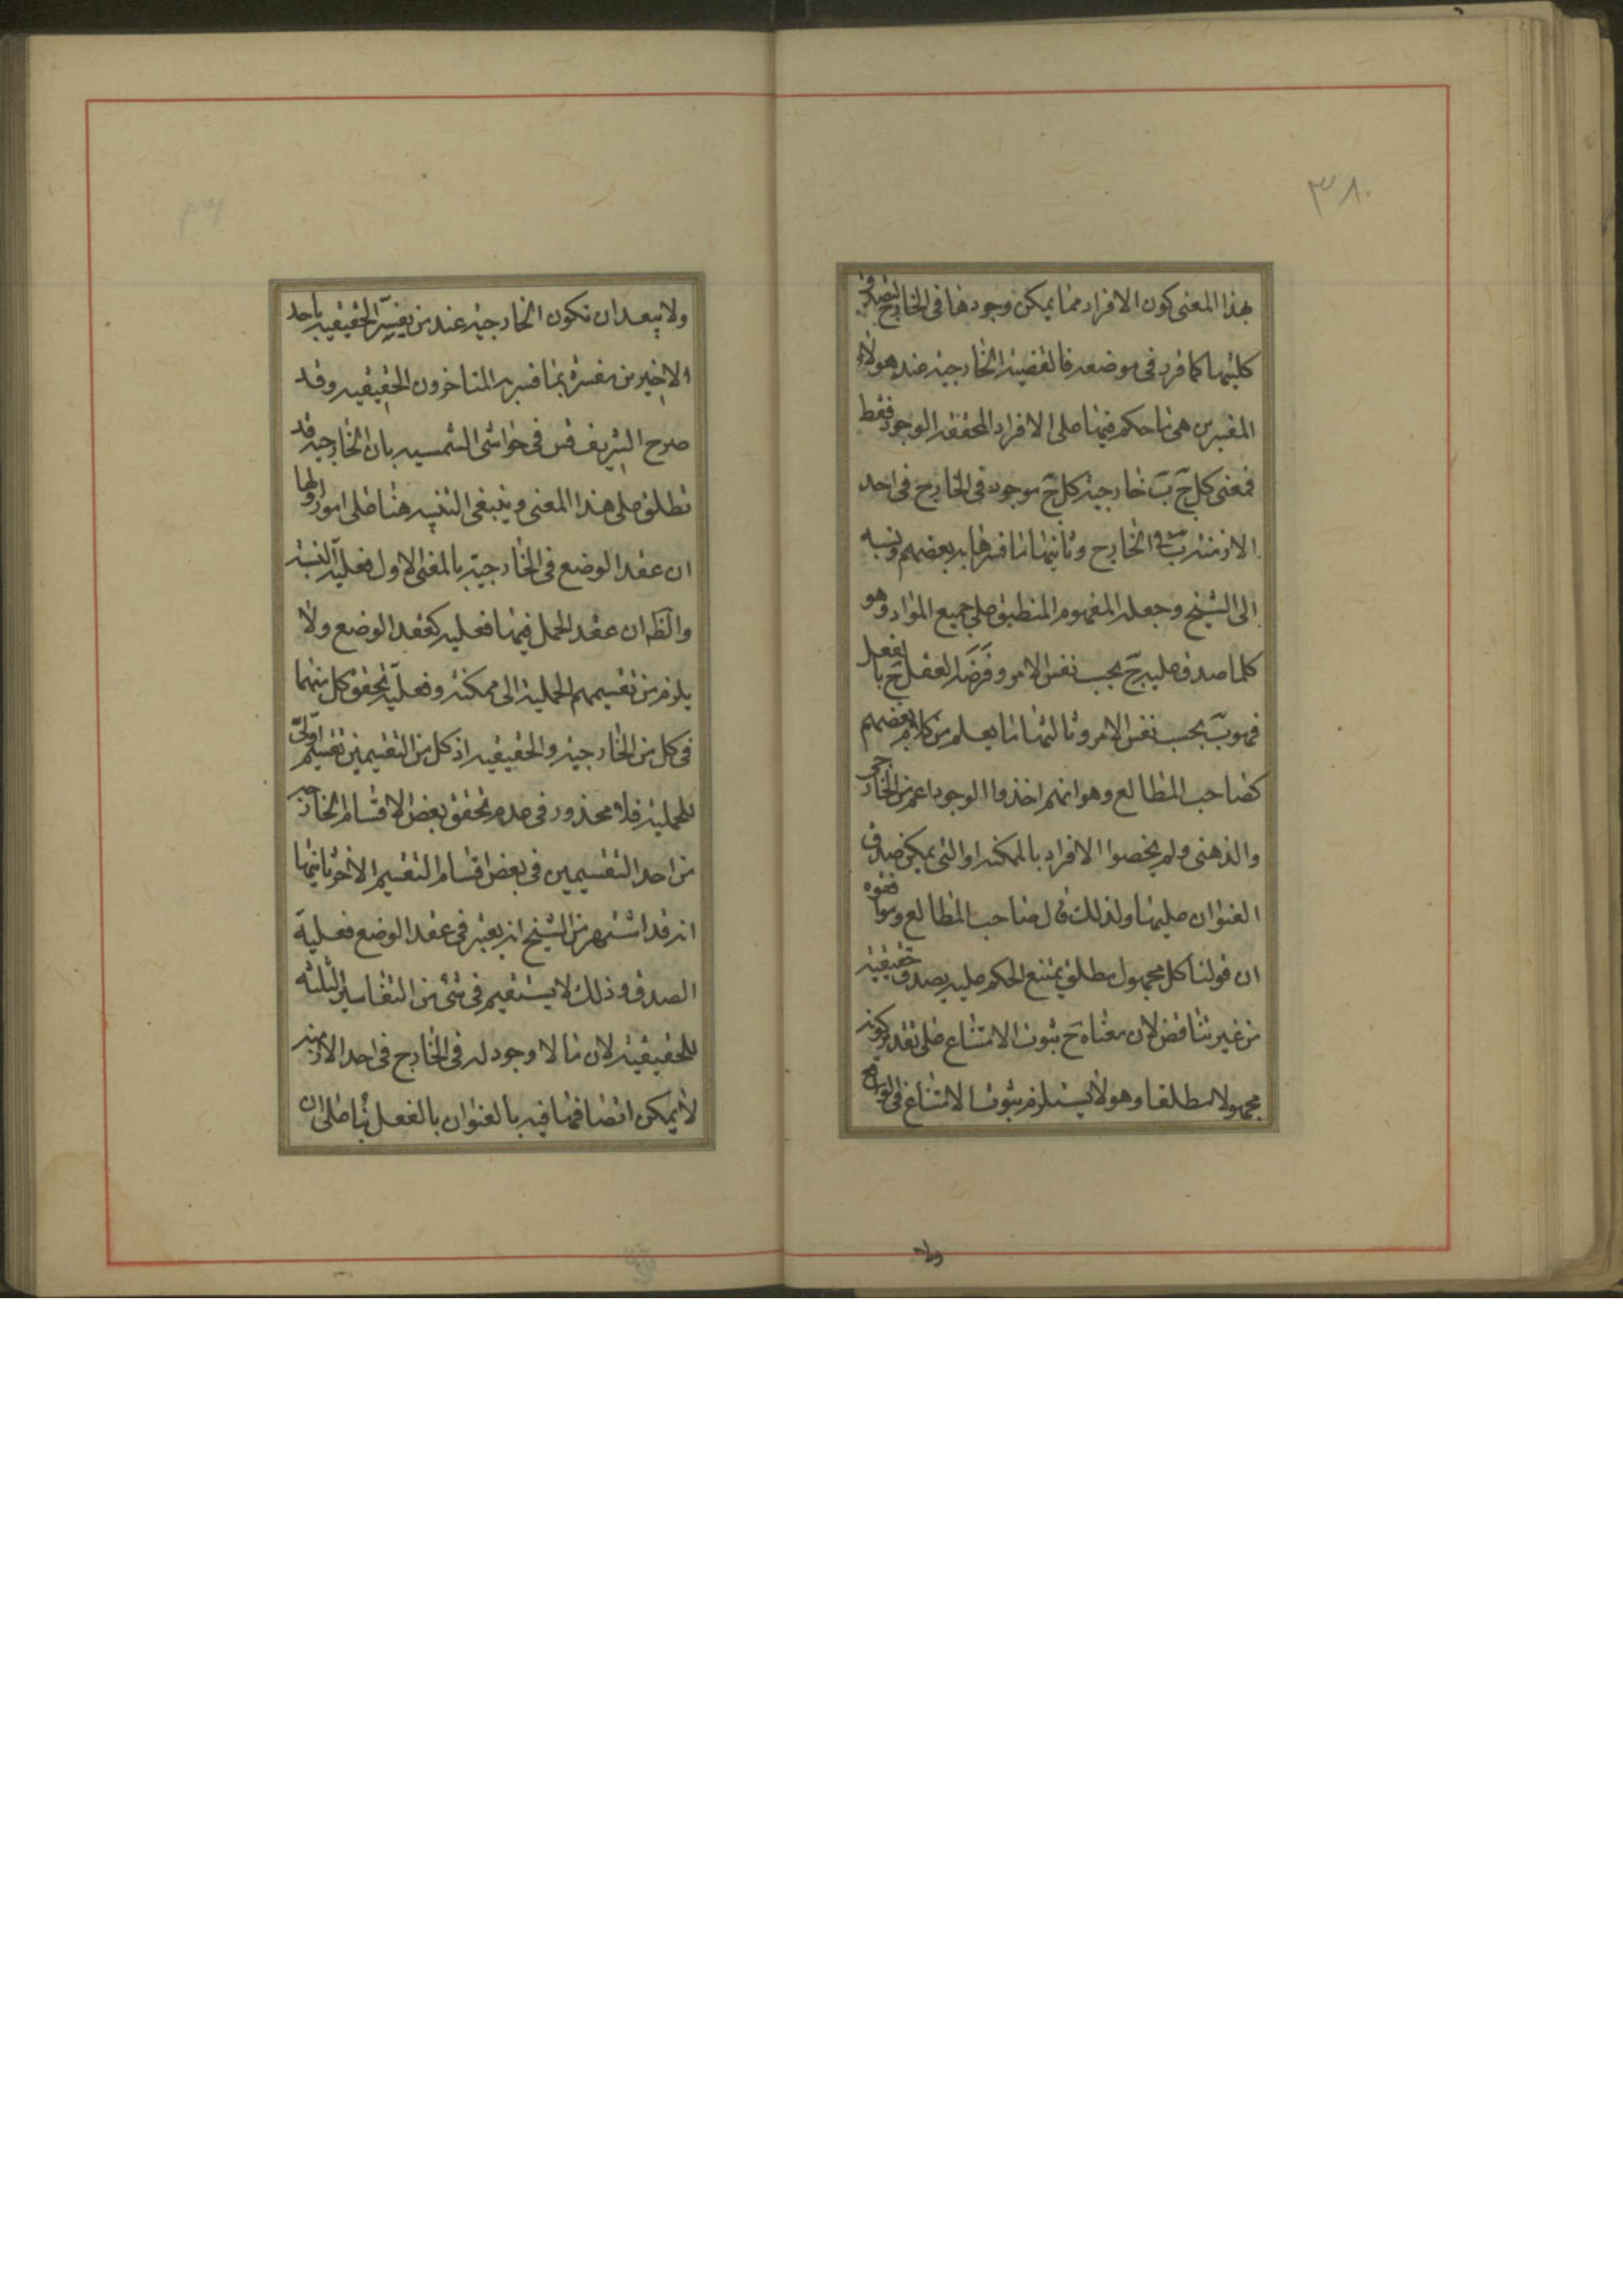 ۳۸۰
بهذا المعنى كون الافراد مما يمكن وجودها فى الخارج ليصدق
كليتها كما قرر فى موضعه فالقضية الخارجية عند هولاء
المفسرين هى ما حكم فيها على الافراد المحققة الوجود فقط
فمعنى كل ج ب خارجية كل ج موجود فى الخارج فى احد
الازمنة ب فى الخارج وثانيها ما فسرها به بعضهم ونسبه
الى الشيخ وجعله المفهوم المنطبق على جميع المواد وهو
كلما صدق عليه ج بحسب نفس الامر وفرضه العقل ج بالفعل
فهو ب بحسب نفس الامر وثالثها ما يعلم من كلام بعضهم
كصاحب المطالع وهو انهم اخذوا الوجود اعم من الخارجى
والذهنى ولم يخصوا الافراد بالممكنة او التى يمكن صدق
العنوان عليها ولذلك قال صاحب المطالع وموافقوه
ان قولنا كل مجهول مطلق يمتنع الحكم عليه يصدق حقيقية
من غير تناقض لان معناه ح ثبوت الامتناع على تقدير كونه
مجهولا مطلقا وهو لا يستلزم ثبوت الامتناع فى الواقع
ولا
ولا يبعد ان تكون الخارجية عند من يفسر الحقيقيه باحد
الاخيرين مفسرة بما فسر به المتاخرون الحقيقيه وقد
صرح الشريف قس فى حواشى الشمسيه بان الخارجيه قد
تطلق على هذا المعنى وينبغى التنبيه هنا على امور اولها
ان عقد الوضع فى الخارجية بالمعنى الاول فعلية النسبة
والظ ان عقد الحمل فيها فعليه كعقد الوضع ولا
يلزم من تقسيمهم الحملية الى ممكنة وفعلية تحقق كل منهما
فى كل من الخارجية والحقيقيه اذ كل من التقسيمين تقسيم اولى
للحملية فلا محذور فى عدم تحقق بعض الاقسام الخارجيه
من احد التقسيمين فى بعض اقسام التقسيم الاخر ثانيها
انه قد اشتهر من الشيخ انه يعتبر فى عقد الوضع فعلية
الصدق وذلك لا يستقيم فى شئ من التفاسير الثلثه
للحقيقية لان ما لا وجود له فى الخارج فى احد الازمنه
لا يمكن اتصافها فيه بالعنوان بالفعل بنا على ان